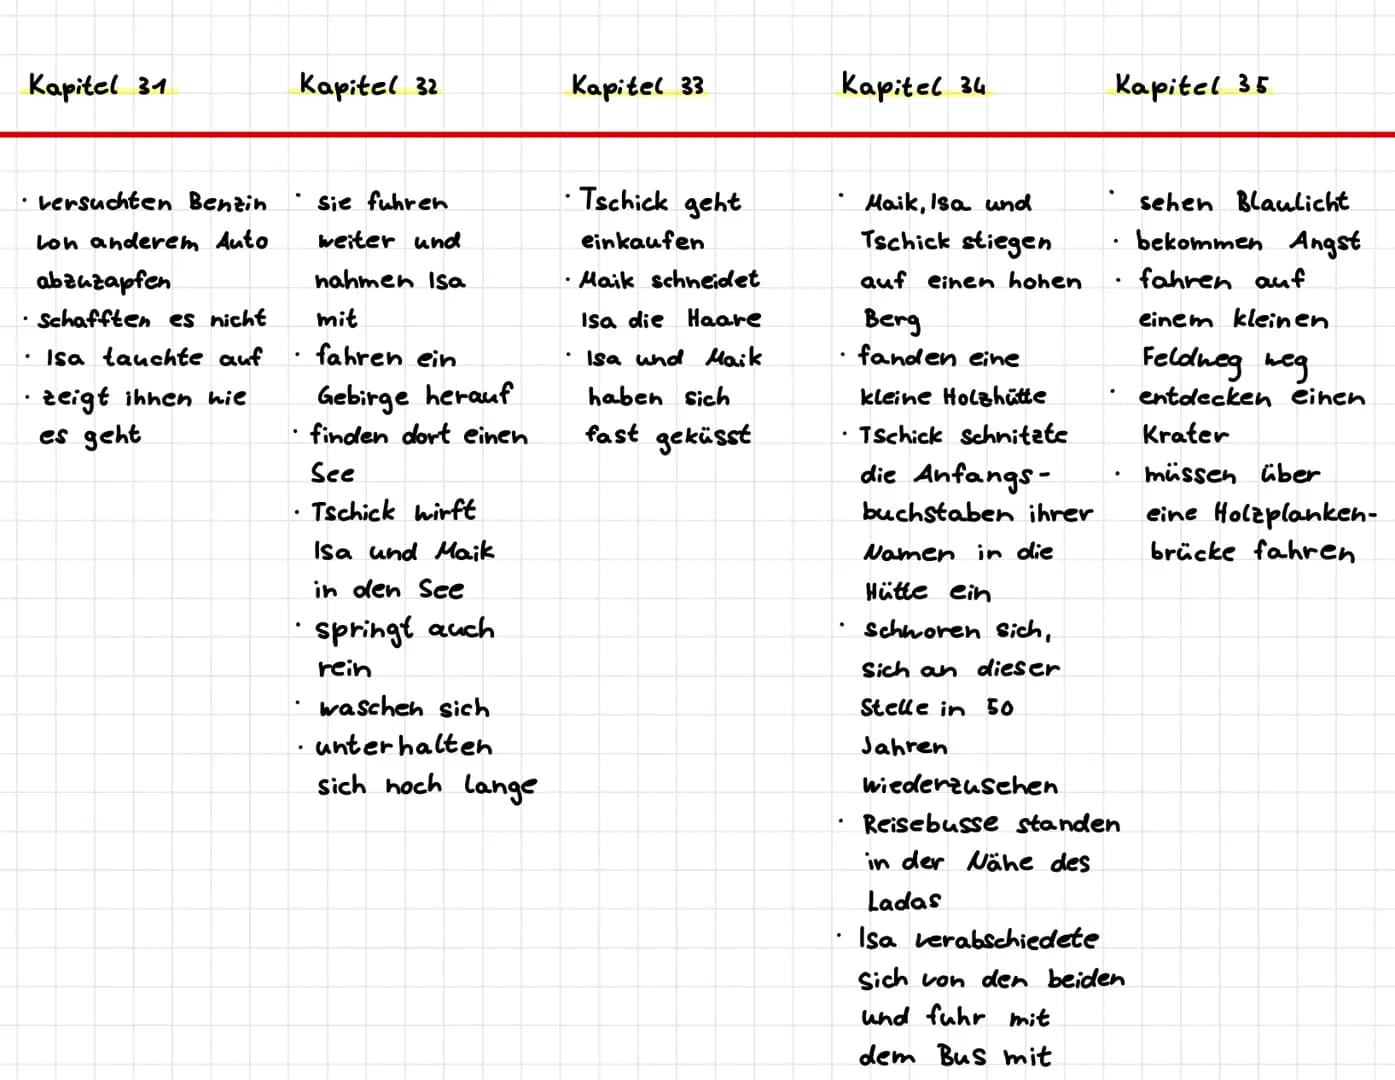 Kapitel 31
· versuchten Benzin
von anderem Auto
abzuzapfen
· schafften es nicht
· Isa tauchte auf
· zeigt ihnen wie
es geht
Kapitel 32
· sie fuhren
weiter und
nahmen Isa
mit
· fahren ein
Gebirge herauf
· finden dort einen
See
· Tschick wirft
Isa und Maik
in den See
· springt auch
rein
· waschen sich
· unterhalten
sich noch lange
Kapitel 33
· Tschick geht
einkaufen
· Maik schneidet
Isa die Haare
· Isa und Maik
haben sich
fast geküsst
Kapitel 34
· Maik, Isa und
Tschick stiegen
auf einen hohen
Berg
· fanden eine
kleine Holzhütte
· Tschick schnitzte
die Anfangs-
buchstaben ihrer
Namen in die
Hütte ein
· schworen sich,
sich an dieser
Stelle in 50
Jahren
wiederzusehen
· Reisebusse standen
in der Nähe des
Ladas
· Isa verabschiedete
sich von den beiden
und fuhr mit
dem Bus mit
Kapitel 35
· sehen Blaulicht
· bekommen Angst
· fahren auf
einem kleinen
Feldweg weg
· entdecken einen
Krater
· müssen über
eine Holzplanken-
brücke fahren